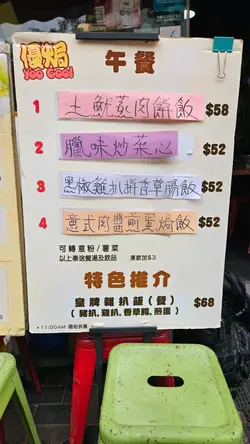 優焗
YOO COOL
午餐
1 土魷蒸肉餅飯 $58
2 臘味炒菜心 $52
3 黑椒雞扒拼香草腸飯 $52
4 意式肉醬煎蛋焗飯 $52
可轉意粉/薯菜
以上奉送餐湯及飲品 凍飲加$3
特色推介
皇牌雜扒飯(餐) $68
(豬扒, 雞扒, 香草腸, 煎蛋)
•11:00AM 開始供應